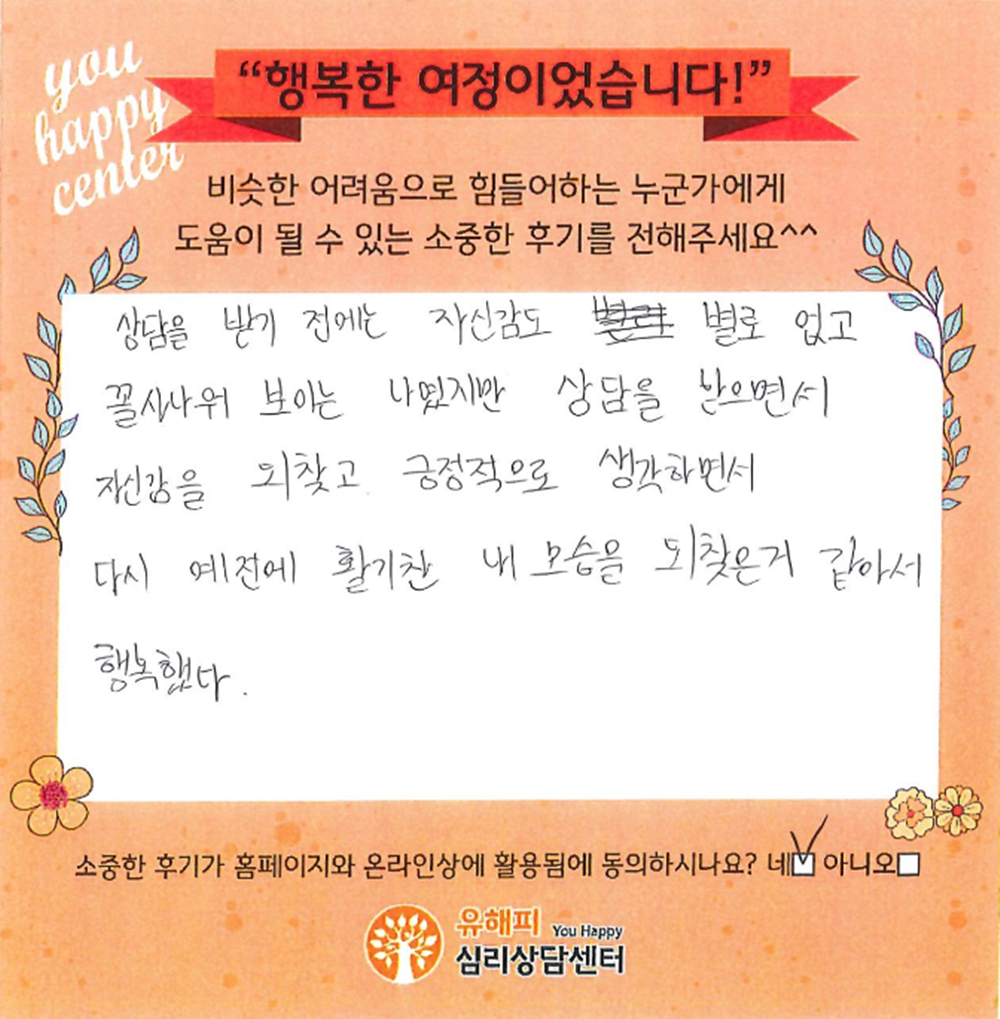 you
happy
center
“행복한 여정이었습니다!”
비슷한 어려움으로 힘들어하는 누군가에게
도움이 될 수 있는 소중한 후기를 전해주세요^^
상담을 받기 전에는 자신감도 별로 없고
꼴사나워 보이는 나였지만 상담을 받으면서
자신감을 되찾고 긍정적으로 생각하면서
다시 예전에 활기찬 내 모습을 되찾은거 같아서
행복했다.
소중한 후기가 홈페이지와 온라인상에 활용됨에 동의하시나요? 네☑ 아니오☐
유해피 You Happy
심리상담센터